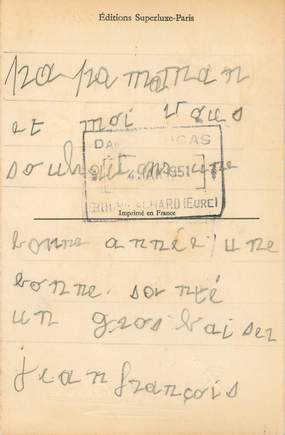 Éditions Superluxe-Paris
papa maman
et moi vous
souhaitons une
1951
(EURE)
Imprimé en France
bonne année une
bonne santé
un gros baiser
jean françois